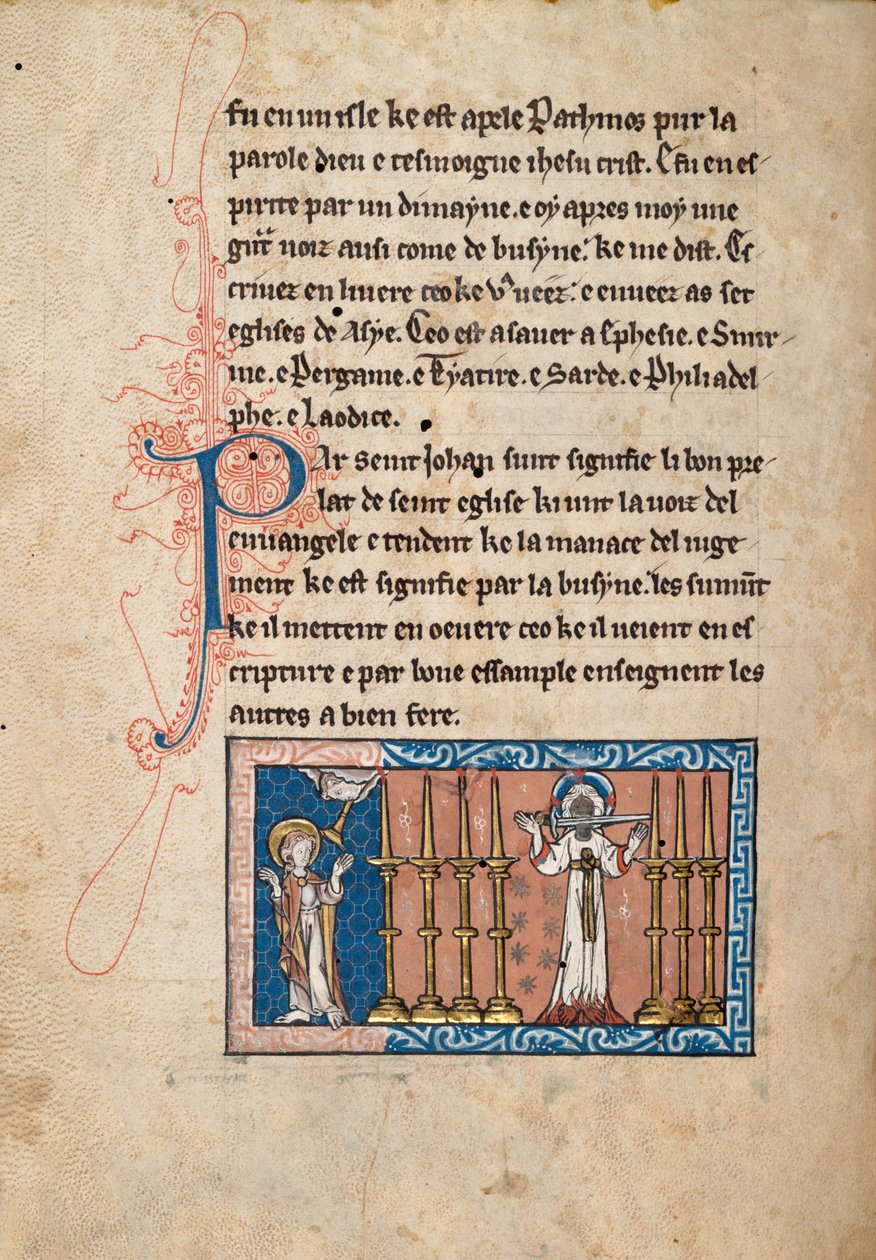 fu en un isle ke est apele Pathmos pur la
parole dieu e tesmoigne ihesu crist. E fu en es-
pirite par un dimayne. e oy apres moy une
gͣnt uoiz ausi come de busyne. ke me dist. Es
criuez en liuere ceo ke vͦ ueez. e enueez as set
eglises de Asye. Ceo est a sauer a Ephesie. e Smir-
me. e Pergame. e Tyatire. e Sarde. e Philiadel
phe. e Laodice.
Par seint Johan sunt signifie li bon pre-
lat de seint eglise ki unt la uoiz del
euuangele e tendent ke la manace del iuge-
ment ke est signifie par la busyne. les sumūt
ke il mettent en oeuere ceo ke il ueient en es-
cripture e par bone essample enseignent les
autres a bien fere.